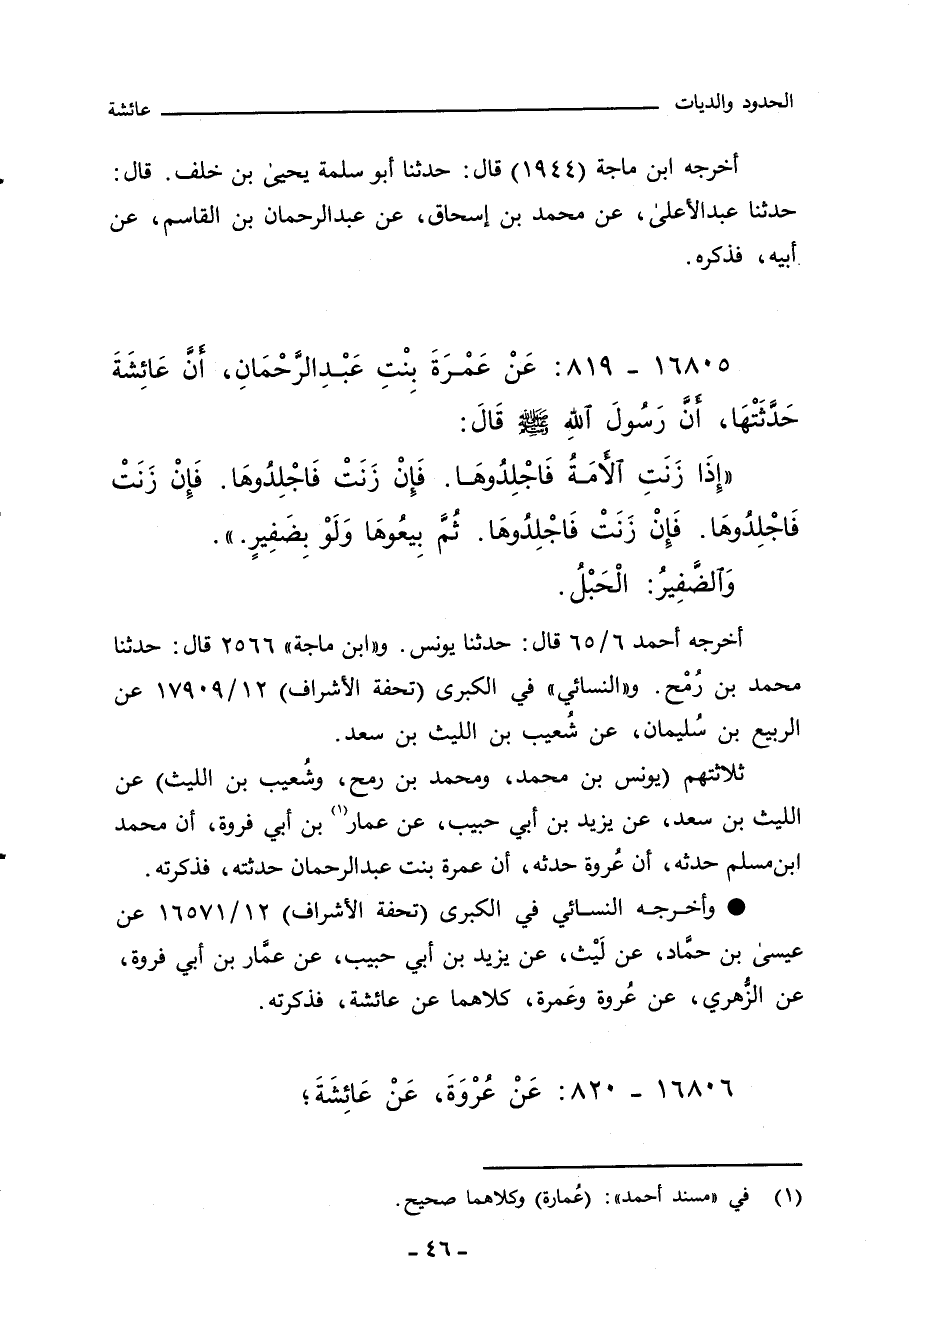 الحدود والديات ـــــــــــــــــ عائشة
أخرجه ابن ماجة (١٩٤٤) قال: حدثنا أبو سلمة يحيىٰ بن خلف. قال:
حدثنا عبدالأعلىٰ، عن محمد بن إسحاق، عن عبدالرحمان بن القاسم، عن
أبيه، فذكره.
١٦٨٠٥ - ٨١٩: عَنْ عَمْرَةَ بِنْتِ عَبْدِالرَّحْمَانِ، أَنَّ عَائِشَةَ
حَدَّثَتْهَا، أَنَّ رَسُولَ ٱللهِ ﷺ قَالَ:
«إِذَا زَنَتِ ٱلأَمَةُ فَاجْلِدُوهَا. فَإِنْ زَنَتْ فَاجْلِدُوهَا. فَإِنْ زَنَتْ
فَاجْلِدُوهَا. فَإِنْ زَنَتْ فَاجْلِدُوهَا. ثُمَّ بِيعُوهَا وَلَوْ بِضَفِيرٍ.».
وَٱلضَّفِيرُ: الْحَبْلُ.
أخرجه أحمد ٦/٦٥ قال: حدثنا يونس. و«ابن ماجة» ٢٥٦٦ قال: حدثنا
محمد بن رُمْح. و«النسائي» في الكبرى (تحفة الأشراف) ١٧٩٠٩/١٢ عن
الربيع بن سُليمان، عن شُعيب بن الليث بن سعد.
ثلاثتهم (يونس بن محمد، ومحمد بن رمح، وشُعيب بن الليث) عن
الليث بن سعد، عن يزيد بن أبي حبيب، عن عمار(١) بن أبي فروة، أن محمد
ابن مسلم حدثه، أن عُروة حدثه، أن عمرة بنت عبدالرحمان حدثته، فذكرته.
● وأخرجه النسائي في الكبرى (تحفة الأشراف) ١٦٥٧١/١٢ عن
عيسىٰ بن حمَّاد، عن لَيْث، عن يزيد بن أبي حبيب، عن عمَّار بن أبي فروة،
عن الزُّهري، عن عُروة وعَمرة، كلاهما عن عائشة، فذكرته.
١٦٨٠٦ - ٨٢٠: عَنْ عُرْوَةَ، عَنْ عَائِشَةَ؛
(١) في «مسند أحمد»: (عُمارة) وكلاهما صحيح.
- ٤٦ -